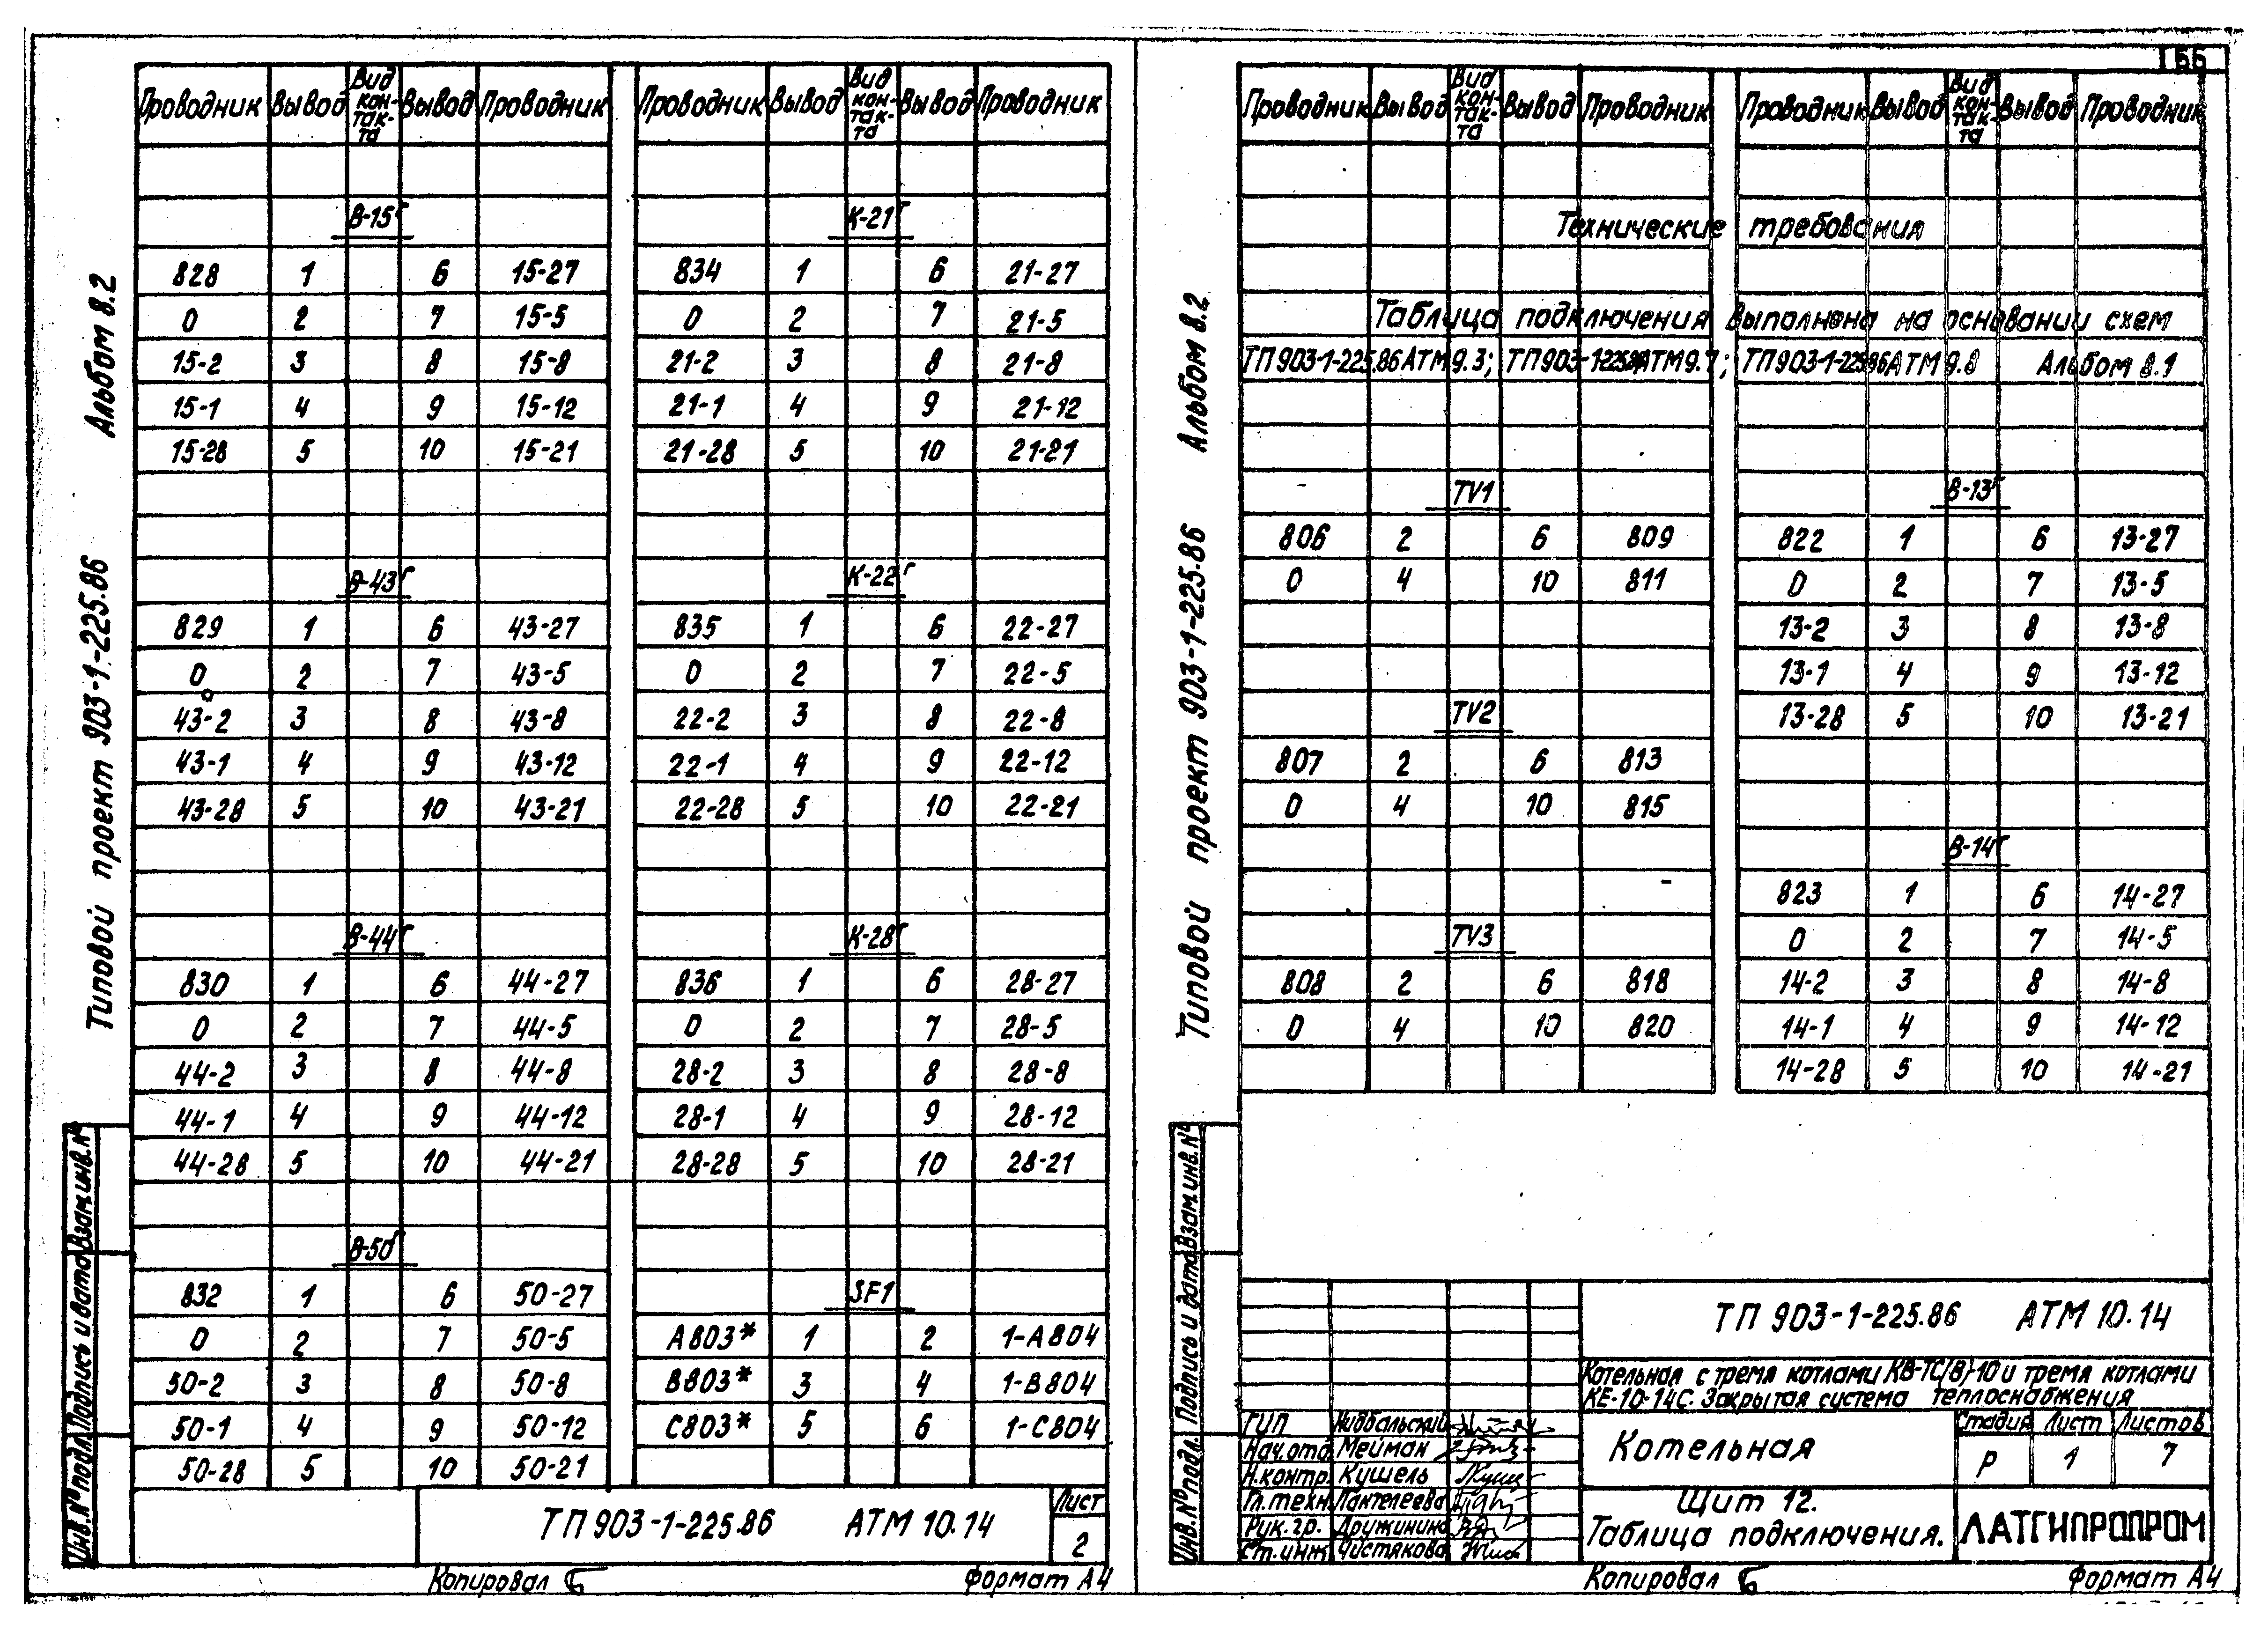 Проводник Вывод Вид кон-так-та Вывод Проводник Проводник Вывод Вид кон-так-та Вывод Проводник
В-15г К-21г
828 1 6 15-27 834 1 6 21-27
0 2 7 15-5 0 2 7 21-5
15-2 3 8 15-8 21-2 3 8 21-8
15-1 4 9 15-12 21-1 4 9 21-12
15-28 5 10 15-21 21-28 5 10 21-21
В-43г К-22г
829 1 6 43-27 835 1 6 22-27
0 2 7 43-5 0 2 7 22-5
43-2 3 8 43-8 22-2 3 8 22-8
43-1 4 9 43-12 22-1 4 9 22-12
43-28 5 10 43-21 22-28 5 10 22-21
В-44г К-28г
830 1 6 44-27 836 1 6 28-27
0 2 7 44-5 0 2 7 28-5
44-2 3 8 44-8 28-2 3 8 28-8
44-1 4 9 44-12 28-1 4 9 28-12
44-28 5 10 44-21 28-28 5 10 28-21
В-50г
832 1 6 50-27 SF1
0 2 7 50-5 А803* 1 2 1-А804
50-2 3 8 50-8 В803* 3 4 1-В804
50-1 4 9 50-12 С803* 5 6 1-С804
50-28 5 10 50-21
ТП 903-1-225.86 АТМ 10.14
Лист
2
Копировал
Формат А4
Типовой проект 903-1-225.86 Альбом 8.2
Инв.№ подл. Подпись и дата Взам.инв.№
166
Проводник Вывод Вид кон-так-та Вывод Проводник Проводник Вывод Вид кон-так-та Вывод Проводник
Технические требования
Таблица подключения выполнена на основании схем
ТП 903-1-225.86 АТМ 9.3; ТП 903-1-225.86 АТМ 9.7; ТП 903-1-225.86 АТМ 9.8 Альбом 8.1
TV1 В-13г
806 2 6 809 822 1 6 13-27
0 4 10 811 0 2 7 13-5
13-2 3 8 13-8
13-1 4 9 13-12
TV2 13-28 5 10 13-21
807 2 6 813
0 4 10 815
В-14г
823 1 6 14-27
TV3 0 2 7 14-5
808 2 6 818 14-2 3 8 14-8
0 4 10 820 14-1 4 9 14-12
14-28 5 10 14-21
ТП 903-1-225.86 АТМ 10.14
Котельная с тремя котлами КВ-ТС(В)-10 и тремя котлами
КЕ-10-14С. Закрытая система теплоснабжения
ГИП Нидбальский
Нач.отд. Мейман
Н.контр. Кушель
Гл.техн. Пантелеева
Рук.гр. Дружинина
Ст.инж. Чистякова
Котельная
Стадия Лист Листов
Р 1 7
Щит 12.
Таблица подключения.
ЛАТГИПРОПРОМ
Копировал
Формат А4
Типовой проект 903-1-225.86 Альбом 8.2
Инв.№ подл. Подпись и дата Взам.инв.№